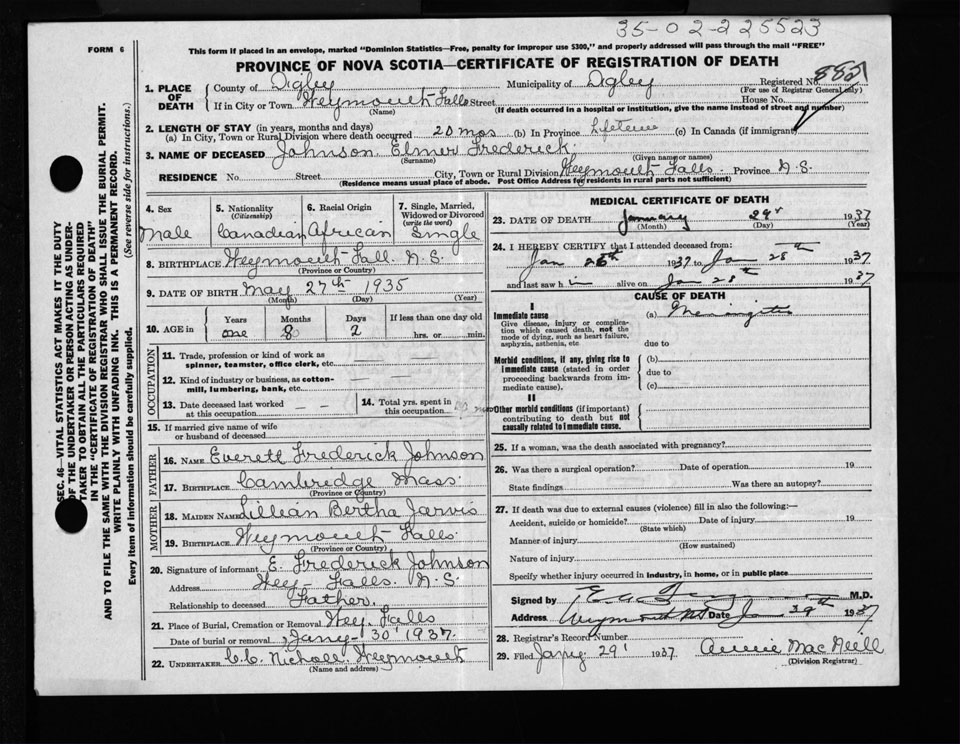 35-02-225523
FORM 6
This form if placed in an envelope, marked "Dominion Statistics—Free, penalty for improper use $300," and properly addressed will pass through the mail "FREE"
PROVINCE OF NOVA SCOTIA—CERTIFICATE OF REGISTRATION OF DEATH
1. PLACE OF DEATH
County of Digby Municipality of Digby Registered No.
(For use of Registrar General only)
If in City or Town Weymouth Falls Street House No.
(Name) (If death occurred in a hospital or institution, give the name instead of street and number)
2. LENGTH OF STAY (in years, months and days)
(a) In City, Town or Rural Division where death occurred 20 mos (b) In Province Lifetime (c) In Canada (if immigrant)
3. NAME OF DECEASED Johnson Elmer Frederick
(Surname) (Given name or names)
RESIDENCE No. Street City, Town or Rural Division Weymouth Falls Province N.S.
(Residence means usual place of abode. Post Office Address for residents in rural parts not sufficient)
4. Sex
Male
5. Nationality
(Citizenship)
Canadian
6. Racial Origin
African
7. Single, Married, Widowed or Divorced
(write the word)
Single
8. BIRTHPLACE Weymouth Fall. N.S.
(Province or Country)
9. DATE OF BIRTH May 27th 1935
(Month) (Day) (Year)
10. AGE in Years Months Days If less than one day old
one 8 2 hrs. or min.
OCCUPATION
11. Trade, profession or kind of work as
spinner, teamster, office clerk, etc.
12. Kind of industry or business, as cotton-
mill, lumbering, bank, etc.
13. Date deceased last worked
at this occupation
14. Total yrs. spent in
this occupation
15. If married give name of wife
or husband of deceased
FATHER
16. NAME Everett Frederick Johnson
17. BIRTHPLACE Cambridge Mass
(Province or Country)
MOTHER
18. MAIDEN NAME Lillian Bertha Jarvis
19. BIRTHPLACE Weymouth Falls
(Province or Country)
20. Signature of informant E. Frederick Johnson
Address Wey- Falls. N.S.
Relationship to deceased Father.
21. Place of Burial, Cremation or Removal Wey. Falls
Date of burial or removal Jany- 30 1937.
22. UNDERTAKER C.C. Nicholl Weymouth
(Name and address)
MEDICAL CERTIFICATE OF DEATH
23. DATE OF DEATH January 29 1937
(Month) (Day) (Year)
24. I HEREBY CERTIFY that I attended deceased from:
Jan 1937 to Jan 28th 1937
and last saw him alive on Jan 28th 1937
CAUSE OF DEATH
I
Immediate cause
Give disease, injury or complica-
tion which caused death, not the
mode of dying, such as heart failure,
asphyxia, asthenia, etc.
(a) Meningitis
due to
Morbid conditions, if any, giving rise to
immediate cause (stated in order
proceeding backwards from im-
mediate cause).
(b)
due to
(c)
II
Other morbid conditions (if important)
contributing to death but not
causally related to immediate cause.
25. If a woman, was the death associated with pregnancy?
26. Was there a surgical operation? Date of operation 19
State findings Was there an autopsy?
27. If death was due to external causes (violence) fill in also the following:—
Accident, suicide or homicide? Date of injury 19
(State which)
Manner of injury
(How sustained)
Nature of injury
Specify whether injury occurred in industry, in home, or in public place
Signed by M.D.
Address Weymouth NS Date Jan 29th 1937
28. Registrar's Record Number
29. Filed Jany. 29 1937 Annie MacNeill
(Division Registrar)
SEC. 46—VITAL STATISTICS ACT MAKES IT THE DUTY
OF THE UNDERTAKER OR PERSON ACTING AS UNDER-
TAKER TO OBTAIN ALL THE PARTICULARS REQUIRED
IN THE "CERTIFICATE OF REGISTRATION OF DEATH"
AND TO FILE THE SAME WITH THE DIVISION REGISTRAR WHO SHALL ISSUE THE BURIAL PERMIT.
WRITE PLAINLY WITH UNFADING INK. THIS IS A PERMANENT RECORD.
Every item of information should be carefully supplied. (See reverse side for instructions.)